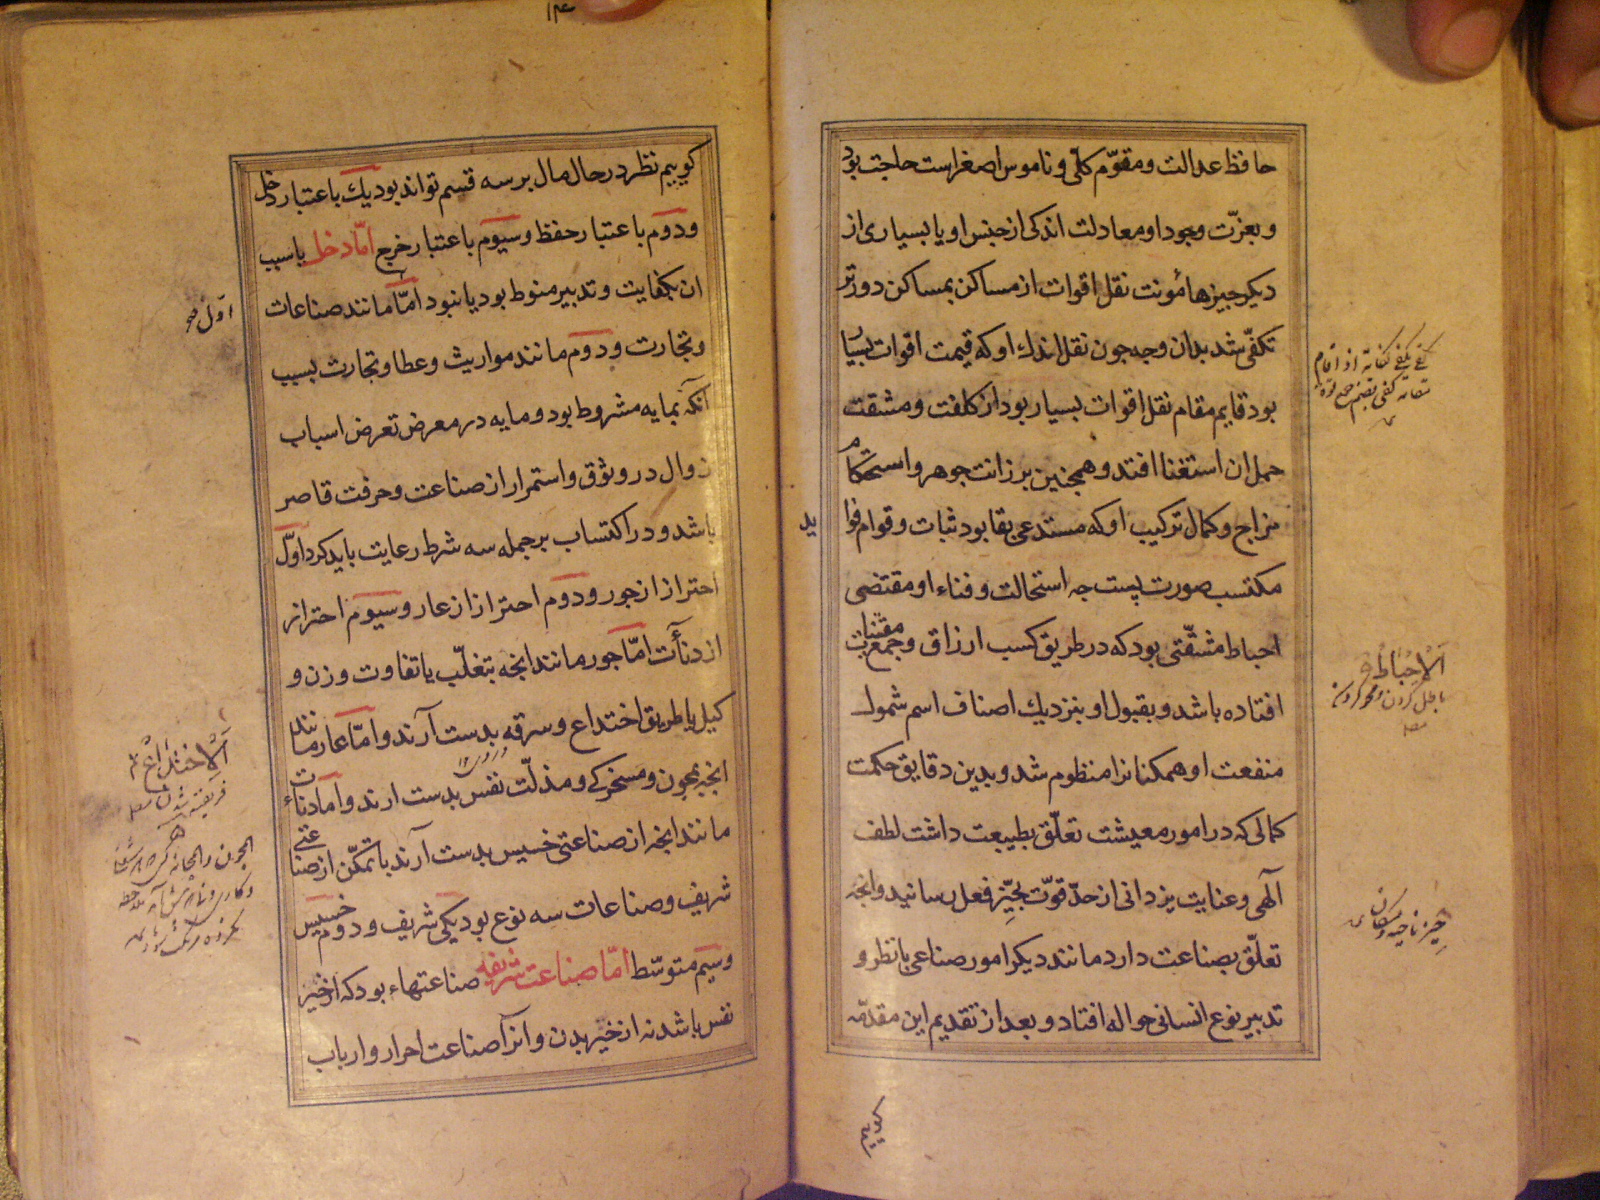 حافظ عدالت و مقوّم کلّی و ناموس اصغراست حاجت بود
و بعزّت وجود او معادلت اندکی از جنس او با بسیاری از
دیکر چیزها مؤنت نقل اقوات از مساکن بمساکن دورتر
تکفّی شد بدان وجه جون نقل اندك او که قیمت اقوات بسیار
بود قایم مقام نقل اقوات بسیار بود از کلفت و مشقت
حمل ان استغنا افتد و همجنین برزانت جوهر و استحکام
مزاج و کمال ترکیب او که مستدعی بقا بود ثبات و قوام فواید
مکتسب صورت بست جه استحالت و فناء او مقتضی
احباط مشقّتی بود که در طریق کسب ارزاق و جمع مقتنیات
افتاده باشد و بقبول او بنزدیك اصناف اسم شمول
منفعت او همکنانرا منظوم شد و بدین دقایق حکمت
کمالی که در امور معیشت تعلّق بطبیعت داشت لطف
آلهی و عنایت یزدانی از حدّ قوّت بحیّز فعل رسانید و انجه
تعلّق بصناعت دارد مانند دیکر امور صناعی با نظر و
تدبیر نوع انسانی حواله افتاد و بعد از تقدیم این مقدّمه
اَلْاِحْبَاطُ
باطل کردن
حیّز ناحیه و مکان
کوییم
۱۴
کوییم نظر در حال مال بر سه قسم تواند بود یك باعتبار دخل
و دوم باعتبار حفظ و سیوم باعتبار خرج امّا دخل یا سبب
ان بکفایت و تدبیر منوط بود یا نبود امّا مانند صناعات
و تجارت و دوم مانند مواریث و عطا و تجارت بسبب
آنکه بمایه مشروط بود و مایه در معرض تعرض اسباب
زوال در وثوق و استمرار از صناعت و حرفت قاصر
باشد و در اکتساب بر جمله سه شرط رعایت باید کرد اوّل
احتراز از جور و دوم احتراز از عار و سیوم احتراز
از دنأت امّا جور مانند انجه بتغلّب یا تفاوت وزن و
کیل یا طریق اختداع و سرقه بدست آرند و امّا عار مانند
انجه بمجون و مسخرکی و مذلّت نفس بدست ارند و اما دناءت
مانند انجه از صناعتی خسیس بدست آرند با تمکّن از صناعتی
شریف و صناعات سه نوع بود یکی شریف و دوم خسیس
و سیم متوسّط امّا صناعت شریفه صناعتهاء بود که از حیّز
نفس باشد نه از حیّز بدن و آنرا صناعت احرار و ارباب
اوّل
اَلْاِخْتِدَاعُ
فریفته شدن